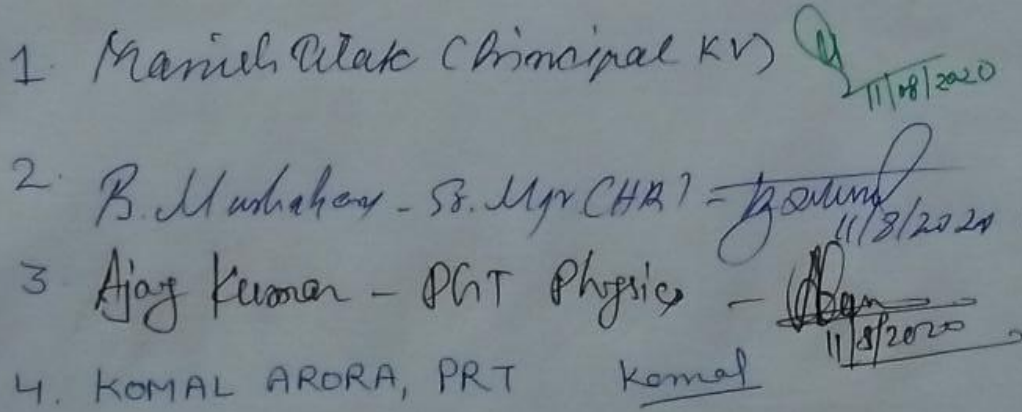 1. Manish Tilak (Principal KV) 11/08/2020
2. B. - Sr. Mgr (HR) - 11/8/2020
3 Ajay Kumar - PGT Physics - 11/8/2020
4. KOMAL ARORA, PRT Komal